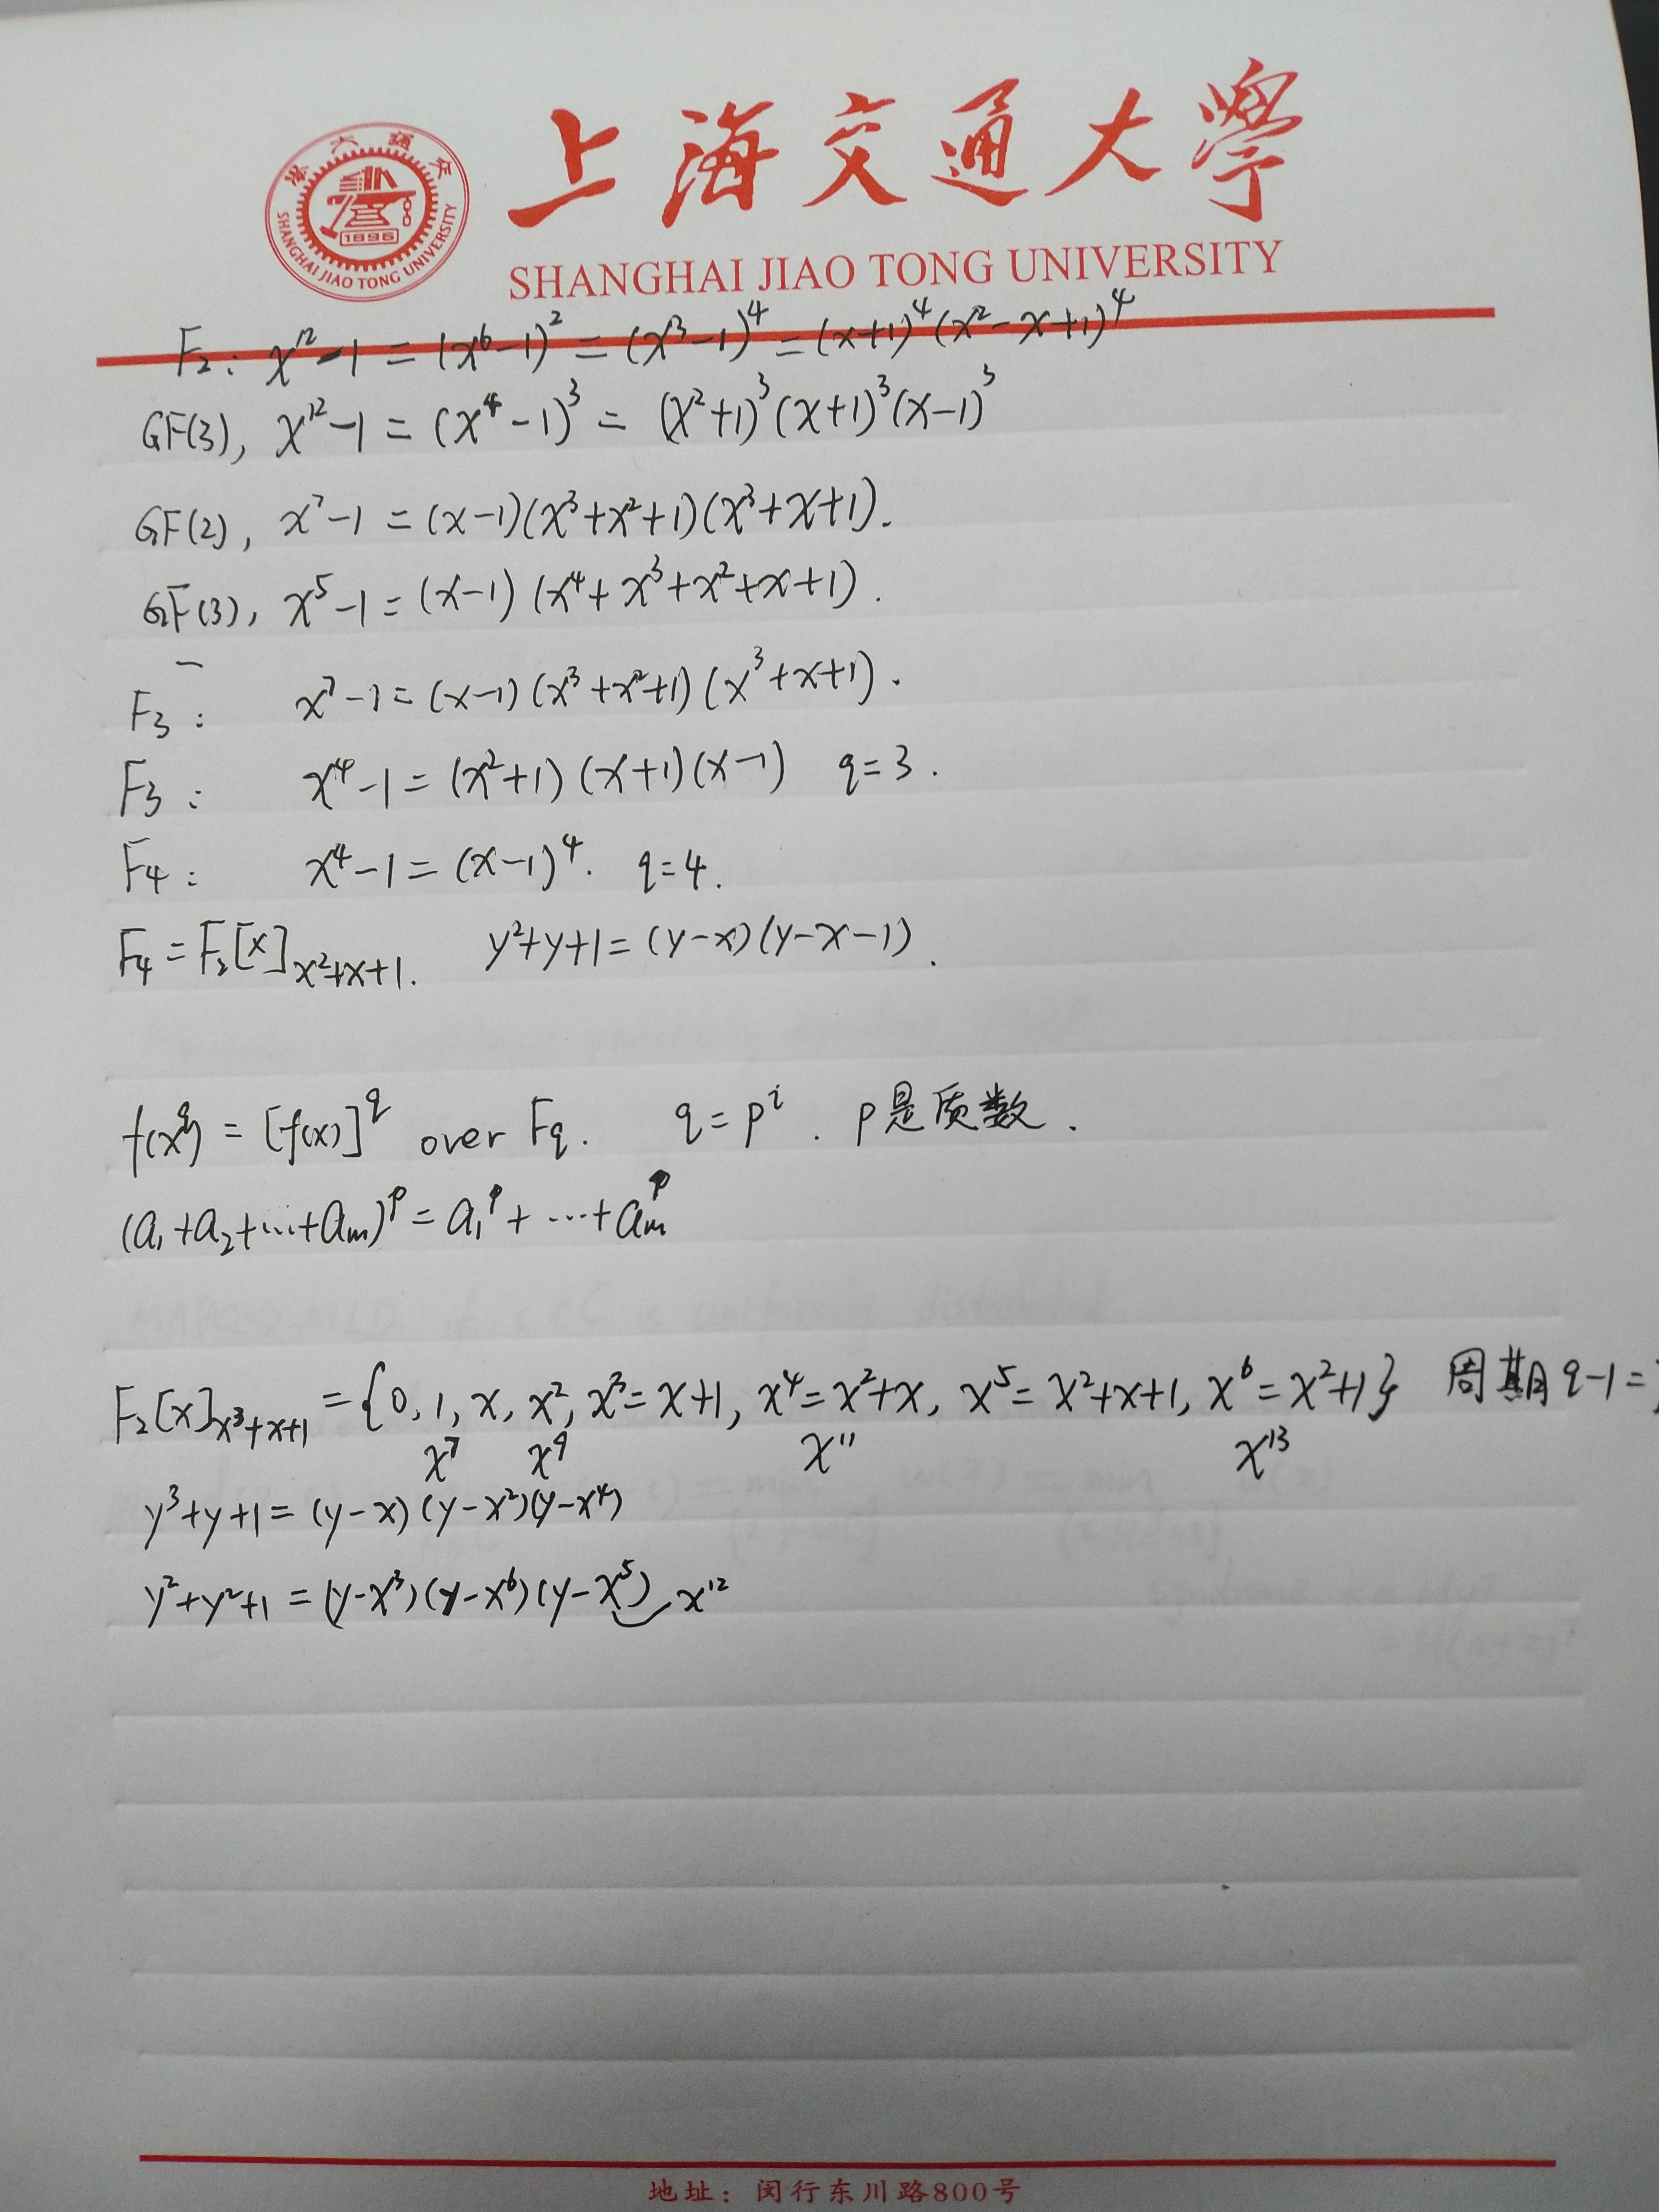 上海交通大學
SHANGHAI JIAO TONG UNIVERSITY
1896
SHANGHAI JIAO TONG UNIVERSITY
F₂: x¹²-1 = (x⁶-1)² = (x³-1)⁴ = (x+1)⁴(x²-x+1)⁴
GF(3), x¹²-1 = (x⁴-1)³ = (x²+1)³(x+1)³(x-1)³
GF(2), x⁷-1 = (x-1)(x³+x²+1)(x³+x+1).
GF(3), x⁵-1 = (x-1)(x⁴+x³+x²+x+1).
F₃: x⁷-1 = (x-1)(x³+x²+1)(x³+x+1).
F₃: x⁴-1 = (x²+1)(x+1)(x-1) q=3.
F₄: x⁴-1 = (x-1)⁴. q=4.
F₄ = F₂[x]_{x²+x+1}. y²+y+1 = (y-x)(y-x-1).
f(x^q) = [f(x)]^q over F_q. q=p^i. p是质数.
(a₁+a₂+…+a_m)^p = a₁^p+…+a_m^p
F₂[x]_{x³+x+1} = {0, 1, x, x², x³=x+1, x⁴=x²+x, x⁵=x²+x+1, x⁶=x²+1} 周期q-1=
x⁷ x⁹ x¹¹ x¹³
y³+y+1 = (y-x)(y-x²)(y-x⁴)
y²+y²+1 = (y-x³)(y-x⁶)(y-x⁵) x¹²
地址：闵行东川路800号